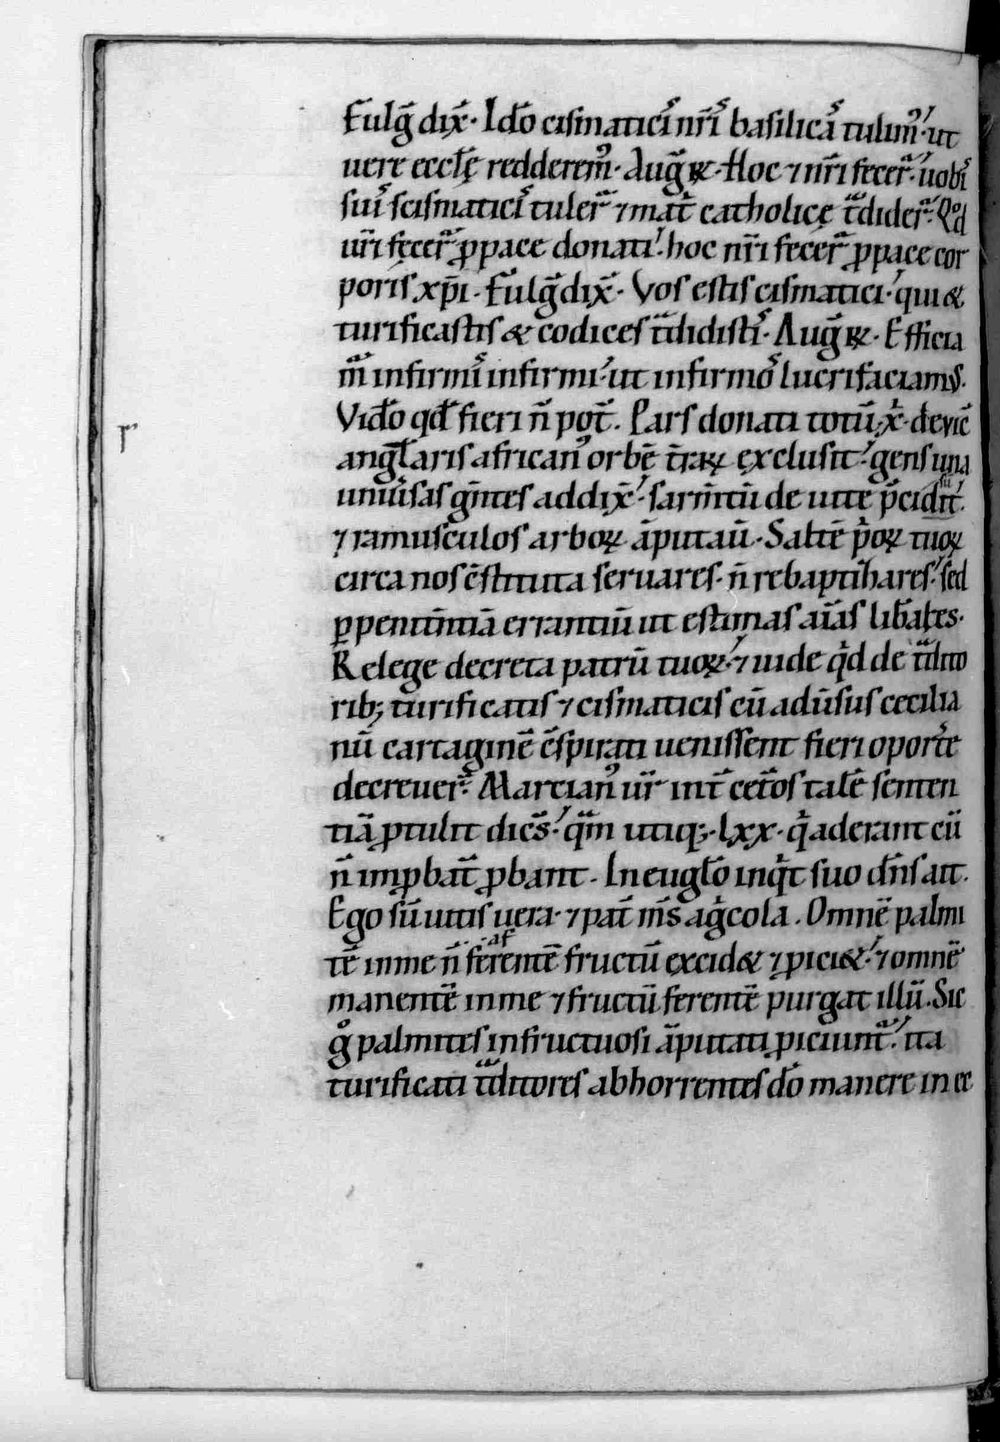 Fulg̃ dix̃· Ido̅ cismatici nr̃i basilicã tulim᷒· ut
uere eccl̃ę redderem᷒· Aug̃ R̷· Hoc ⁊ nr̃i fecer̃· uobi᷒
sui᷒ scismatici᷒ tuler̃ ⁊ mat̃ catholicę t̃dider̃· Qod
ur̃i fecer̃ ꝓ pace donati· hoc nr̃i fecer̃ ꝓ pace cor
poris xp̃i· Fulg̃ dix̃· Vos estis cismatici· qui &
turificastis & codices t̃didisti᷒· Aug̃ R̷· Efficia
m̃ infirmi᷒ infirmi· ut infirmo᷒ lucrifaciam᷒·
Vido̅ qd̃ fieri ñ pot̃· Pars donati totũ· x̃· de vic̃
ang̃laris african᷒ orbẽ t̃raꝝ exclusit· gens una
uniũsas g̃ntes addix̃· sarm̃tũ de uite p̃cidit̃·
⁊ ramusculos arboꝝ ãputaũ· Saltẽ p̃oꝝ tuoꝝ
circa nos c̃stituta seruares· ñ rebaptiẑares· sed
ꝑ penitñtiã errantiũ ut estimas aĩas lib̃ales·
Relege decreta patrũ tuoꝝ· ⁊ uide q̃d de t̃dito
rib; turificatis ⁊ cismaticis cũ adũsus cecilia
nũ cartaginẽ c̃spirati uenissent fieri oport̃e
decreuer̃· Marcian᷒ ur̃ int̃ cet̃os talẽ senten
tiã ꝓtulit dic̃s· q̃m utiq;· lxx· q̃ aderant cũ
ñ imꝓbat̃ ꝓbant· In eugl̃o inq̃t suo dñs ait·
Ego sũ uitis uera· ⁊ pat̃ m̃s ag̃cola· Omnẽ palmi
tẽ in me ñ ferentẽ fructũ excid& ⁊ ꝓici&· ⁊ omnẽ
manentẽ in me ⁊ fructũ ferentẽ purgat illũ· Sic
g̊ palmites infructuosi ãputati ꝓiciunt̃· ita
turificati t̃ditores abhorrentes do̅ manere in ec